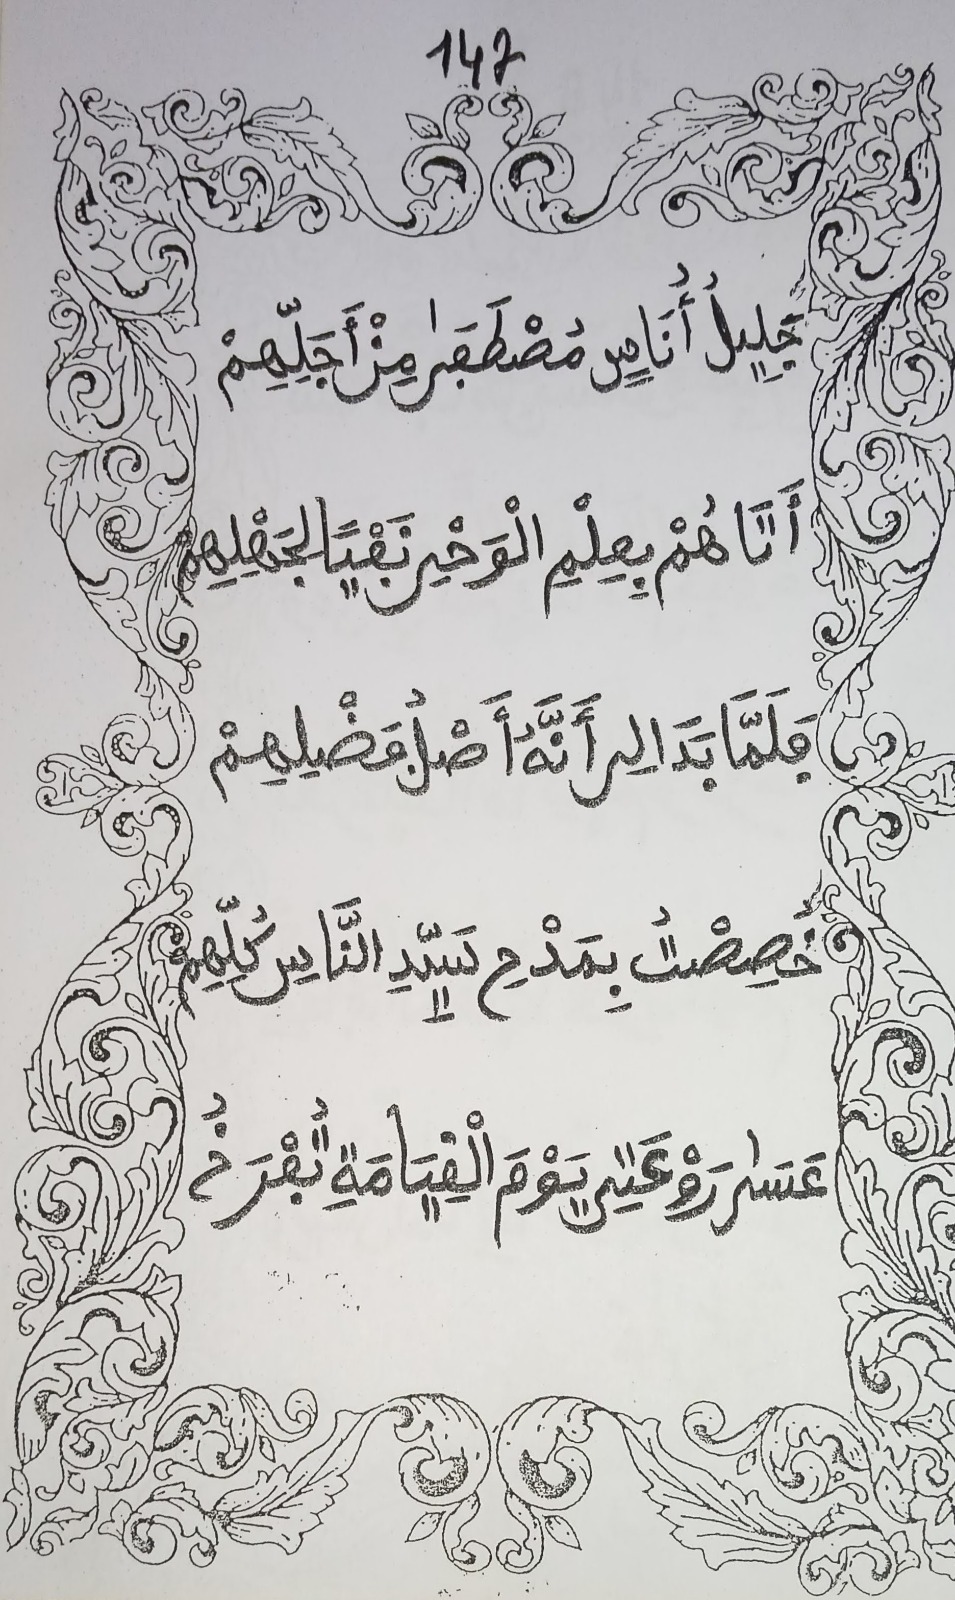 147
جَلِيلُ أُنَاسٍ مُصْطَفَىٰ مِنْ أَجَلِّهِمْ
أَتَاهُمْ بِعِلْمِ الْوَحْيِ نَفْيًا لِجَهْلِهِمْ
فَلَمَّا بَدَا لِي أَنَّهُ أَصْلُ فَضْلِهِمْ
خُصِصْتُ بِمَدْحِ سَيِّدِ النَّاسِ كُلِّهِمْ
عَسَىٰ رَوْعَتِي يَوْمَ الْقِيَامَةِ تُفْرَخُ